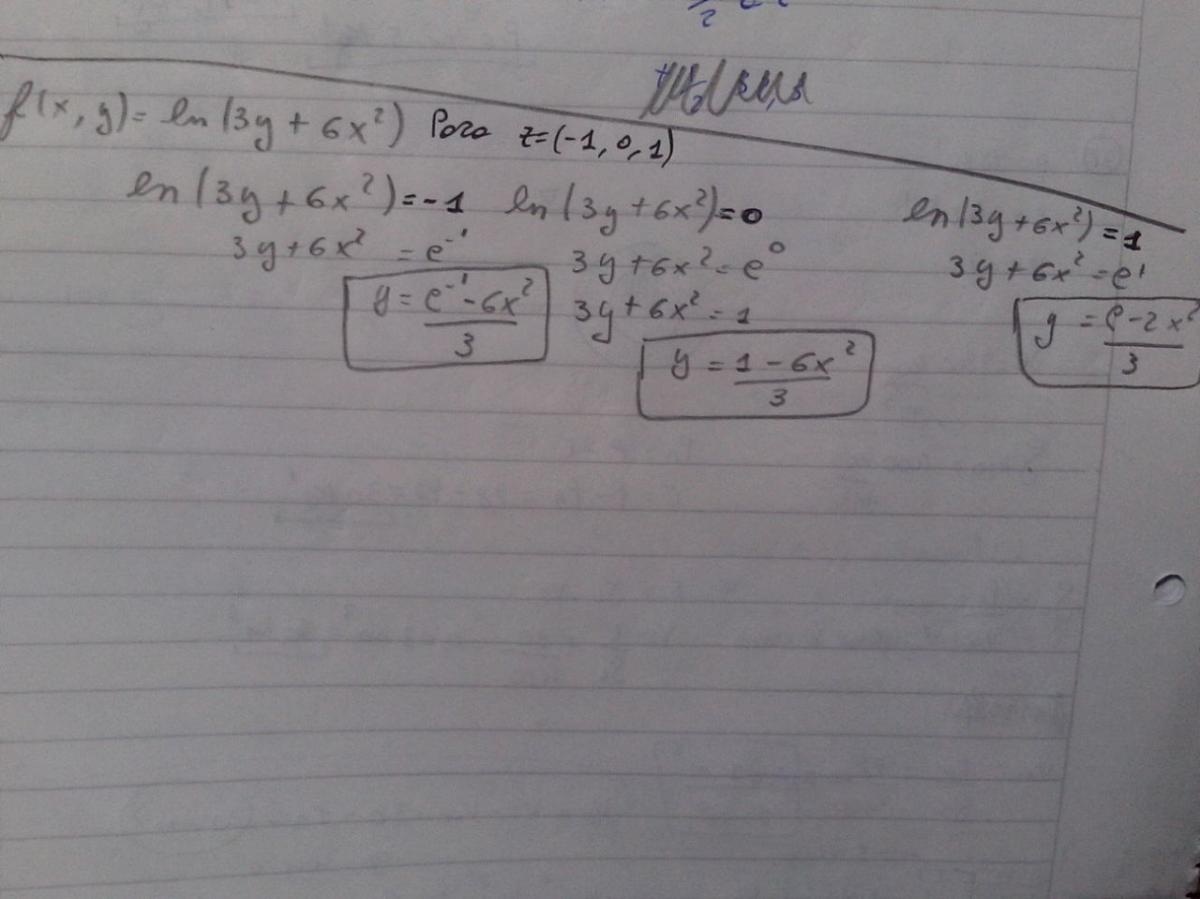 f(x, y) = ln(3y + 6x²) Para z=(-1, 0, 1)
ln(3y + 6x²) = -1
3y + 6x² = e⁻¹
y = (e⁻¹ - 6x²)/3
ln(3y + 6x²) = 0
3y + 6x² = e⁰
3y + 6x² = 1
y = (1 - 6x²)/3
ln(3y + 6x²) = 1
3y + 6x² = e¹
y = (e - 2x²)/3